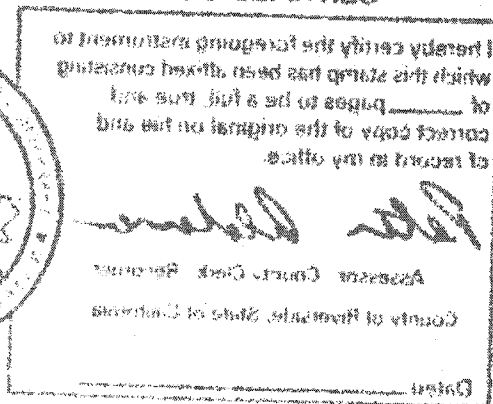 I hereby certify the foregoing instrument to
which this stamp has been affixed consisting
of ______ pages to be a full, true and
correct copy of the original on file and
of record in my office.
Assessor County Clerk Recorder
County of Riverside, State of California
Dated